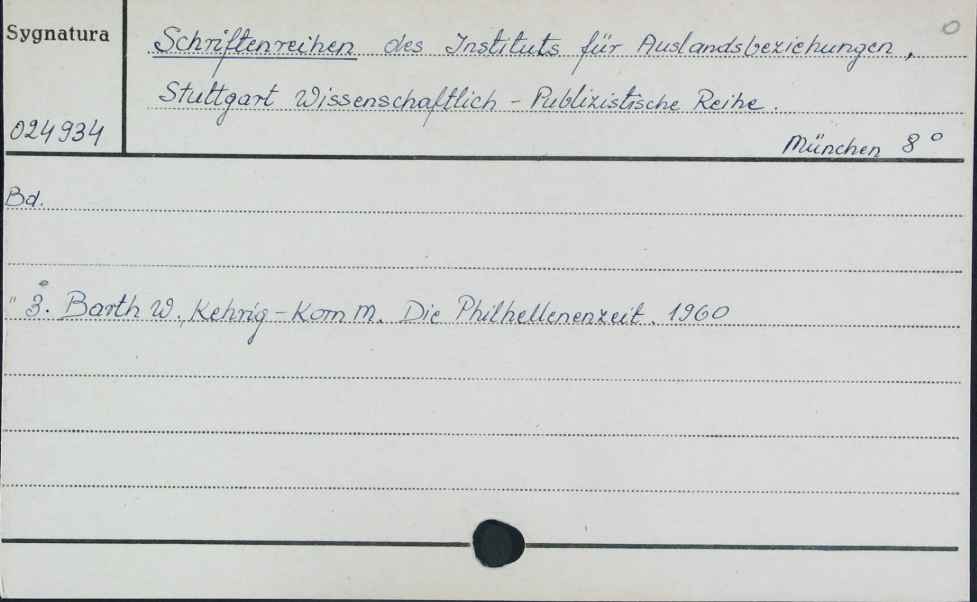 Sygnatura
Schriftenreihen des Instituts für Auslandsbeziehungen,
Stuttgart Wissenschaftlich - Publizistische Reihe.
024934
München 8°
Bd.
" 3. Barth W., Kehrig-Korn M. Die Philhellenenzeit. 1960